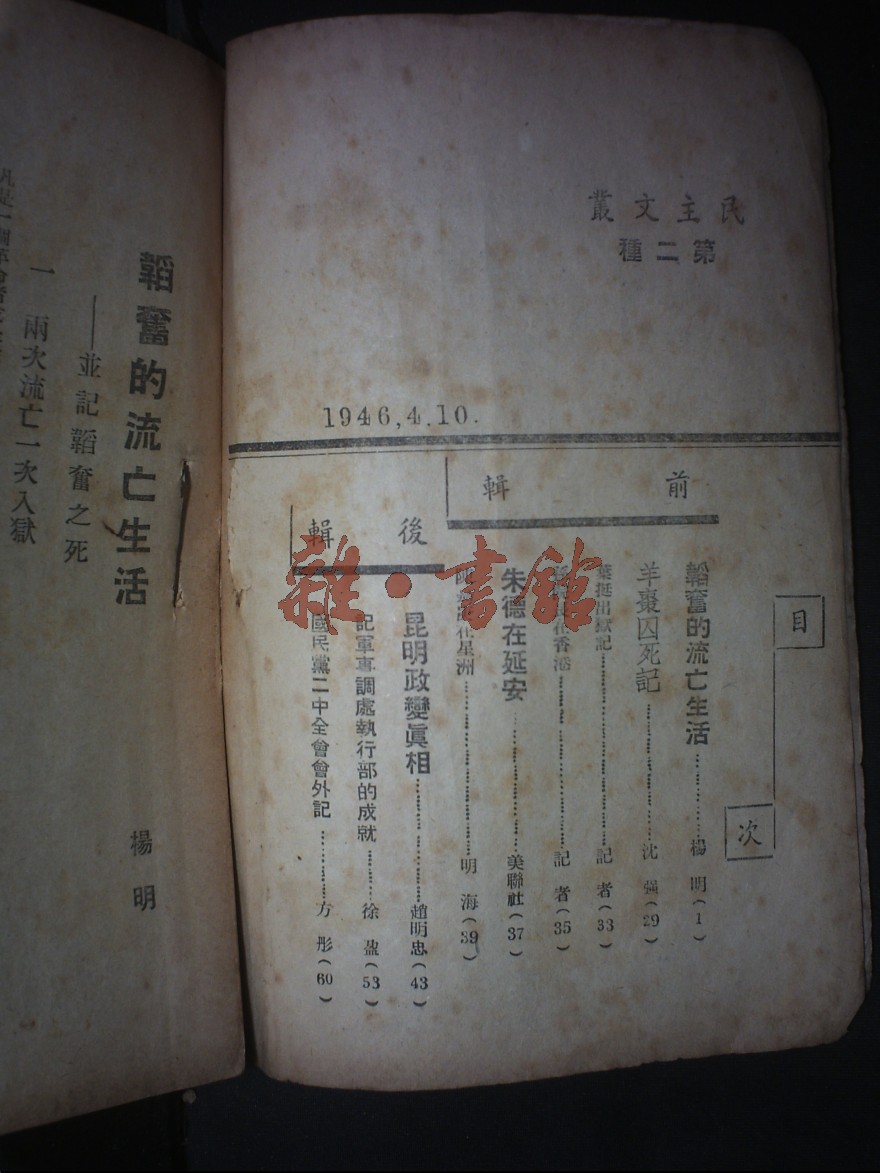 民主文叢
第二種
1946,4.10.
目次
前輯
韜奮的流亡生活………楊明(1)
羊棗囚死記………沈強(29)
葉挺出獄記………記者(33)
在香港………記者(35)
朱德在延安………美聯社(37)
在星洲………明海(39)
後輯
昆明政變眞相………趙明忠(43)
記軍事調處執行部的成就………徐盈(53)
國民黨二中全會會外記………方彤(60)
雜·書館
韜奮的流亡生活
——並記韜奮之死
楊明
一 兩次流亡一次入獄